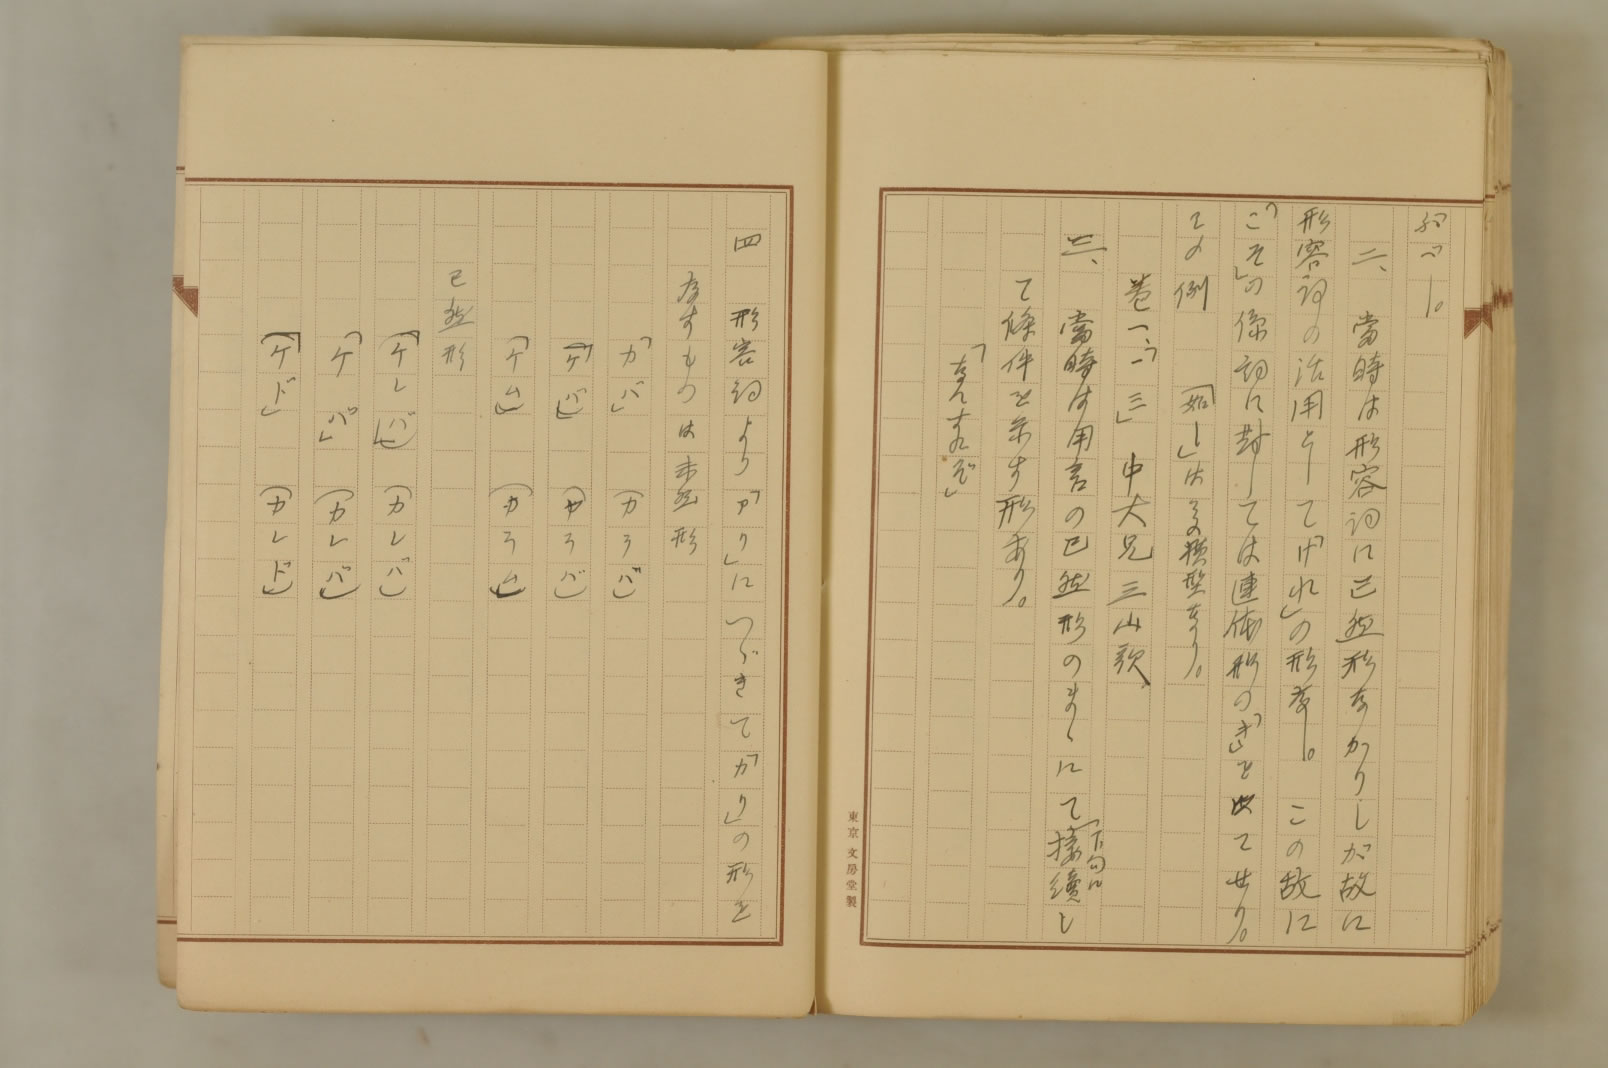 ふべし。
二、當時は形容詞に已然形なかりしが故に
形容詞の活用として「けれ」の形なし。この故に
「こそ」の係詞に對しては連体形の「き」を以てせり。
その例「如し」はその模型なり。
巻一、「一三」中大兄三山歌、
三、當時は用言の已然形のまゝにて「下句に接續し
て條件を示す形あり。
「なんすれぞ」
四 形容詞より「アリ」につゞきて「カリ」の形を
なすものは未然形
「カバ」(カラバ)
「ケバ」(カラバ)
「ケム」(カラム)
已然形
「ケレバ」(カレバ)
「ケバ」(カレバ)
「ケド」(カレド)
東京文房堂製